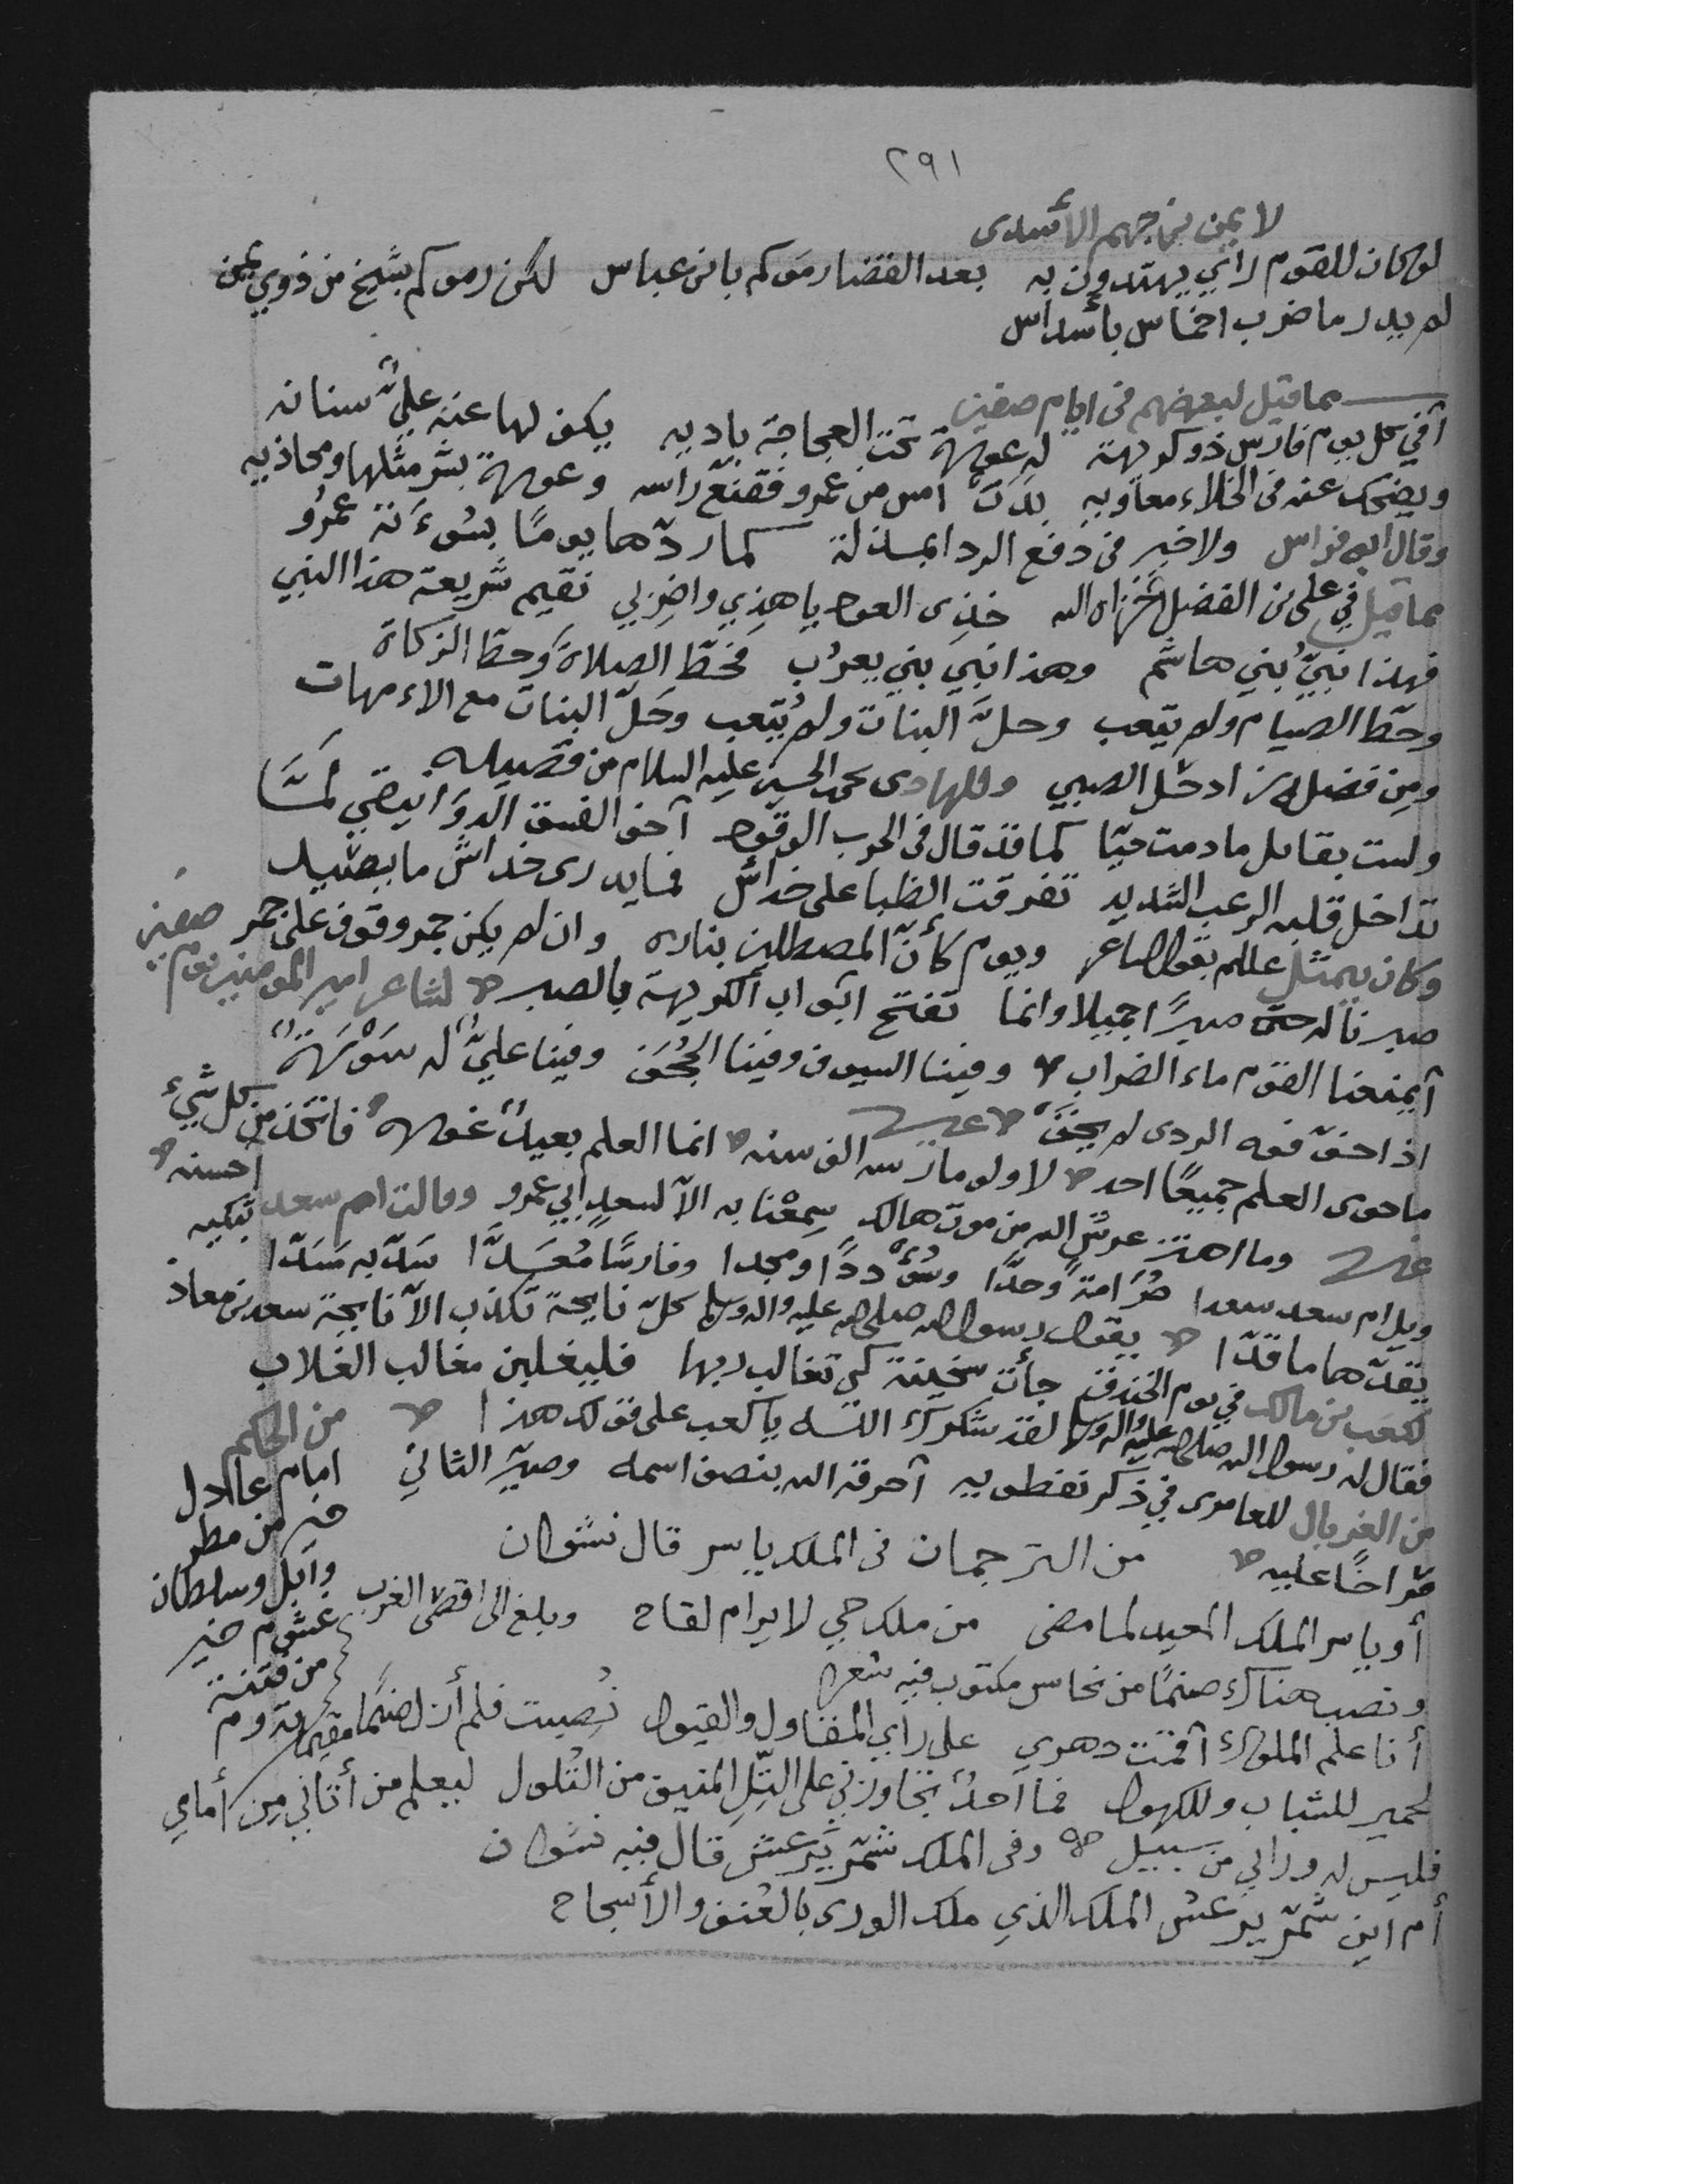 ٢٩١
لا يمن بن جهم الأسدى
لو كان للقوم رأي يهتدون به بعد القضا رموكم بابن عباس لكن رموكم بشيخ من ذوي يمن
لم يدر ما ضرب اخماس بأسداس
مما قيل لبعضهم فى ايام صفين
أفي كل يوم فارس ذو كريهة له عورة تحت العجاجة باديه يكف لها عنه عليٌّ سنانه
ويضحك عنه فى الخلاء معاويه بدت امس من عمرو فقنع رأسه وعورة بشر مثلها ومحاذيه
وقال ابو فراس ولا خير فى دفع الردا بمذلة كما ردّها يومًا بسوءته عمرُو
مما قيل في على بن الفضل اخزاه الله خذى العود يا هذي واضربي نقيم شريعة هذا النبي
فهذا نبيُّ بني هاشم وهذا نبي بني يعرُب فحطّ الصلاة وحطّ الزكاة
وحطّ الصيام ولم يتعب وحلَّ البنات ولم يُتعب وحَلّ البنات مع الامهات
ومن فضله زاد حل الصبي وللهادى يحيى بن الحسين عليه السلام من قصيده
ولست بقائل ما دمت حيًا كما قد قال فى الحرب الوقود آخو الفسق الدوانيقي لمَّا
تداخل قلبه الرعب الشديد تفرقت الظبا على خداش فما يدرى خداش ما يصيد
وكان يتمثل عللم بقول الشاعر ويوم كأنّ المصطلين بناره وان لم يكن جمر وقوف على جمر
صبرنا له حتى صبرًا جميلا وانما تفتح ابواب الكريهة بالصبر لشاعر امير المومنين يوم صفين
آيمنعنا القوم ماء الفرات وفينا السيوف وفينا الجُحَف وفينا عليٌّ له سَوْرَةٌ
اذا خوّفوه الردى لم يخفْ غيره
ما حوى العلم جميعًا احد لا ولو مارسه الف سنه انما العلم بعيدٌ غوره فاتخذ من كل شيء احسنه
غيره وما اهتز عرش الله من موت هالك سمعْنا به الاّ لسعدٍ ابي عمرو وقالت ام سعد تبكيه
ويل ام سعد سعدا صُرَامةً وحدّا وسُؤْددًا ومجدا وفارسًا مُعَدَّا سَدّ به مَسَدّا
يقدّ هاما قدّا يقول رسول الله صلى الله عليه واله وسلم كلّ نايحة تكذب الاّ نايحة سعد بن معاذ
لكعب بن مالك في يوم الخندق جأت سخينة كي تغالب ربها فليغلبن مغالب الغلاب
فقال له رسول الله صلى الله عليه واله وسلم لقد شكرك اللــه يا كعب على قولك هذا
من الغربال للعامرى في ذكر نفطويه آحرقه الله بنصف اسمه وصيّر الثاني
صراخًا عليه من الترجمان فى الملك ياسر قال نشوان
أو ياسر الملك المعيد لما مضى من ملك حي لا يرام لقاح وبلغ الى اقصى الغرب
ونصب هناك صنمًا من نحاس مكتوب فيه شعرا
أنا علم الملوك آقمت دهري على رأي المقاول والقيول نُصيبت فلم أزل صنمًا مقيمًا
لحمير للشباب وللكهول فما احدٌ يجاوزني على التّل المنيف من التلول ليعلم من أتاني من أمامي
فليس له ورائي من سبيل وفى الملك شمّر يرعش قال فيه نشوان
أم اين شمّر يرعش الملك الذي ملك الورى بالعُنف والأسجاح
من الحكم
امام عادل
خير من مطر
وابل وسلطان
غشوم خير
من فتنة
تدوم